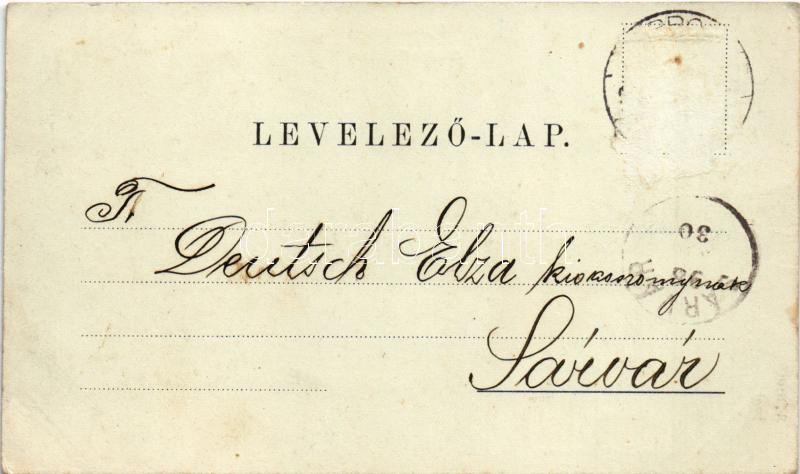 LEVELEZŐ-LAP.
T.
Deutsch Elza kisasszonynak
Sárvár
30